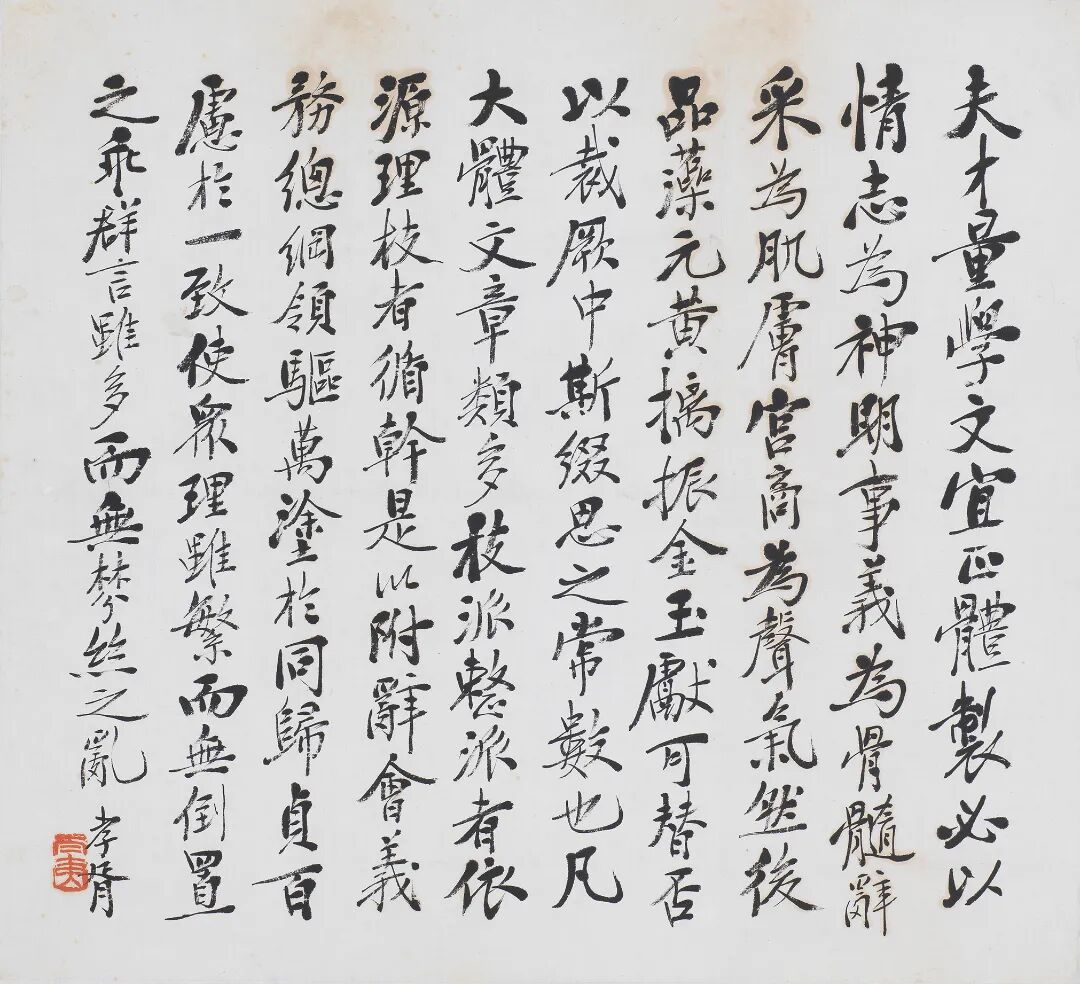 夫才量學文宜正體製必以
情志為神明事義為骨髓辭
采為肌膚宮商為聲氣然後
品藻元黃摛振金玉獻可替否
以裁厥中斯綴思之常數也凡
大體文章類多枝派整派者依
源理枝者循幹是以附辭會義
務總綱領驅萬塗於同歸貞百
慮於一致使眾理雖繁而無倒置
之乖群言雖多而無棼絲之亂
孝胥